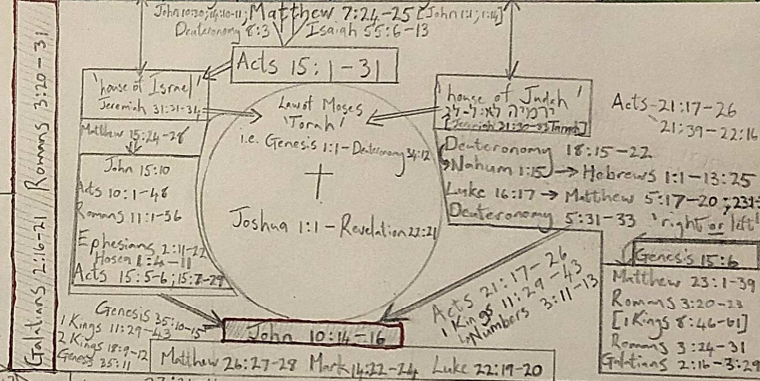 John 10:30; 14:10-11; Matthew 7:24-25 [John 1:1; 1:14]
Deuteronomy 8:3 Isaiah 55:6-13
Acts 15:1-31
'house of Israel'
Jeremiah 31:31-34
Matthew 15:24-28
John 15:10
Acts 10:1-48
Romans 11:1-36
Ephesians 2:11-22
Hosea 1:4-11
Acts 15:5-6; 15:7-29
Law of Moses
'Torah'
i.e. Genesis 1:1-Deuteronomy 34:12
Joshua 1:1-Revelation 22:21
'house of Judah'
ירמיה
[Jeremiah 31:30-33 Tanach]
Acts 21:17-26
21:39-22:16
Deuteronomy 18:15-22
Nahum 1:15 → Hebrews 1:1-13:25
Luke 16:17 → Matthew 5:17-20;
Deuteronomy 5:31-33 'right or left'
Genesis 15:6
Matthew 23:1-39
Romans 3:20-23
[1 Kings 8:46-61]
Romans 3:24-31
Galatians 2:16-3:29
Acts 21:17-26
1 Kings 11:29-43
Numbers 3:11-13
John 10:14-16
Genesis 35:10-15
1 Kings 11:29-43
2 Kings 18:9-12
Genesis 35:11
Matthew 26:27-28 Mark 14:22-24 Luke 22:19-20
Galatians 2:16-21 / Romans 3:20-31